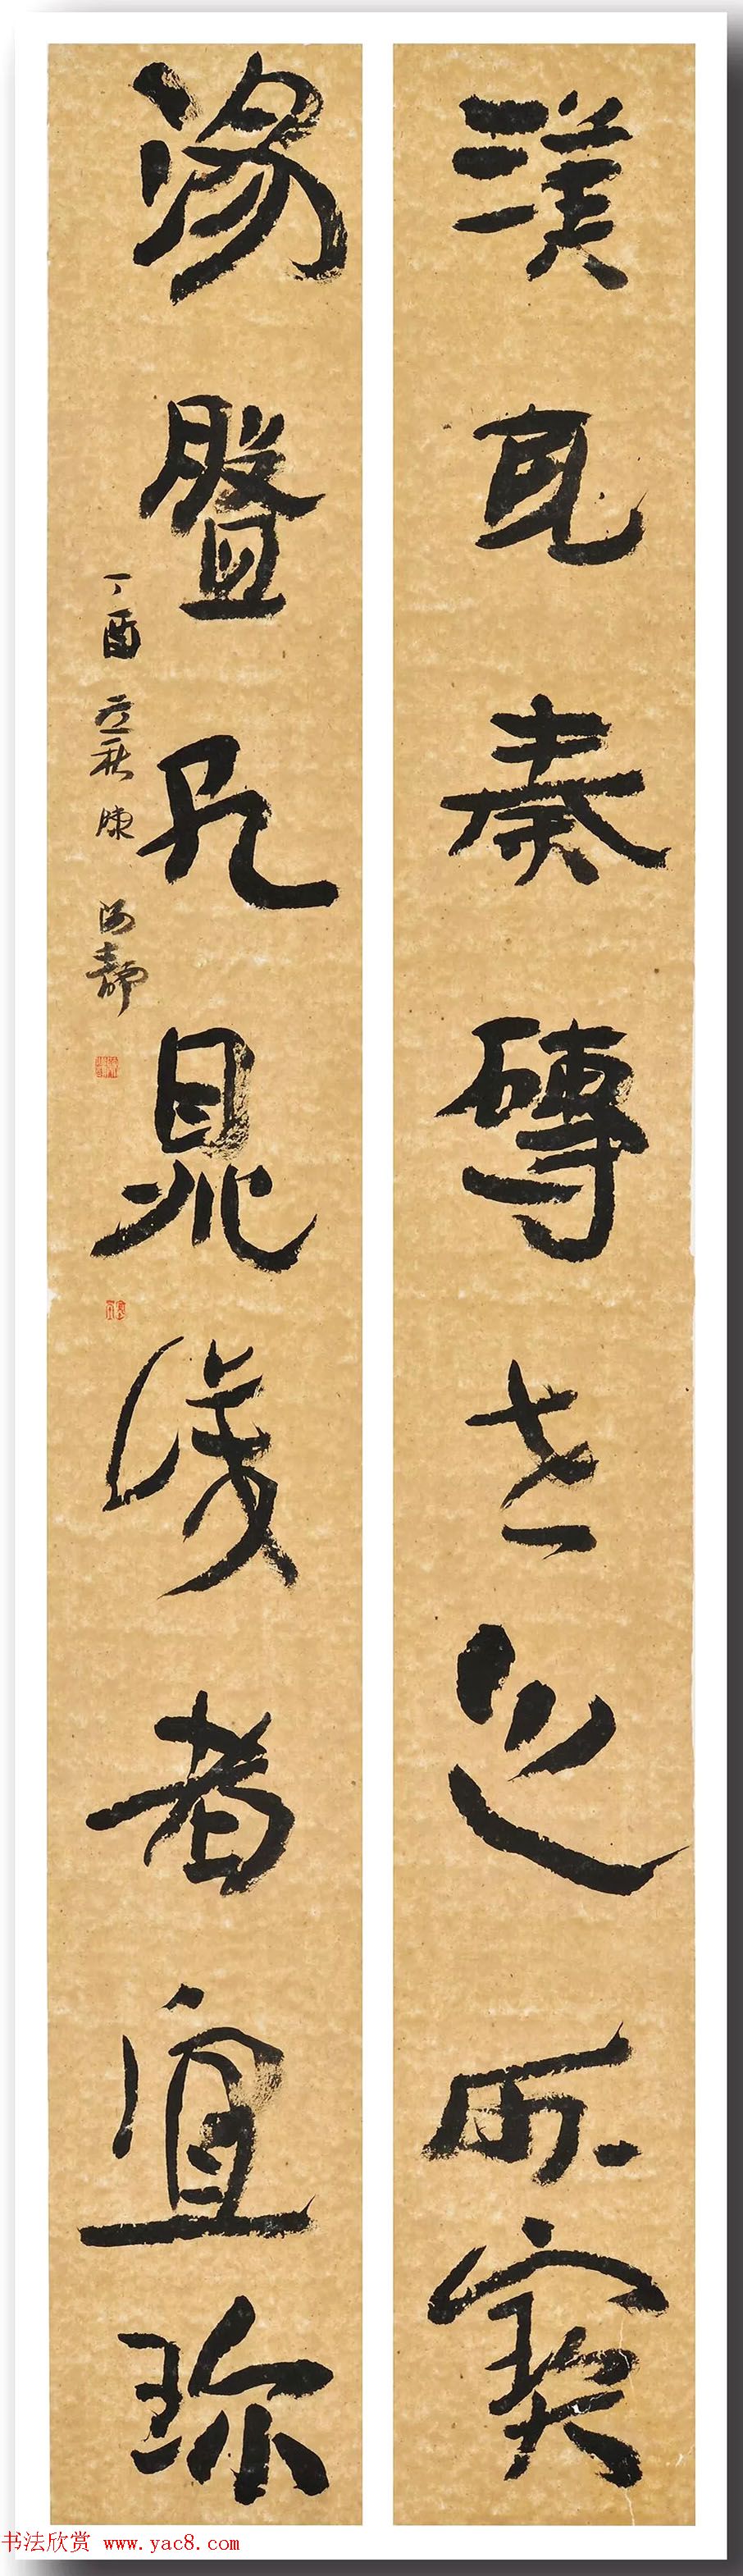 漢瓦秦磚世之所寶
湯盤孔鼎識者宜珍
丁酉立秋陳靜
书法欣赏 www.yac8.com